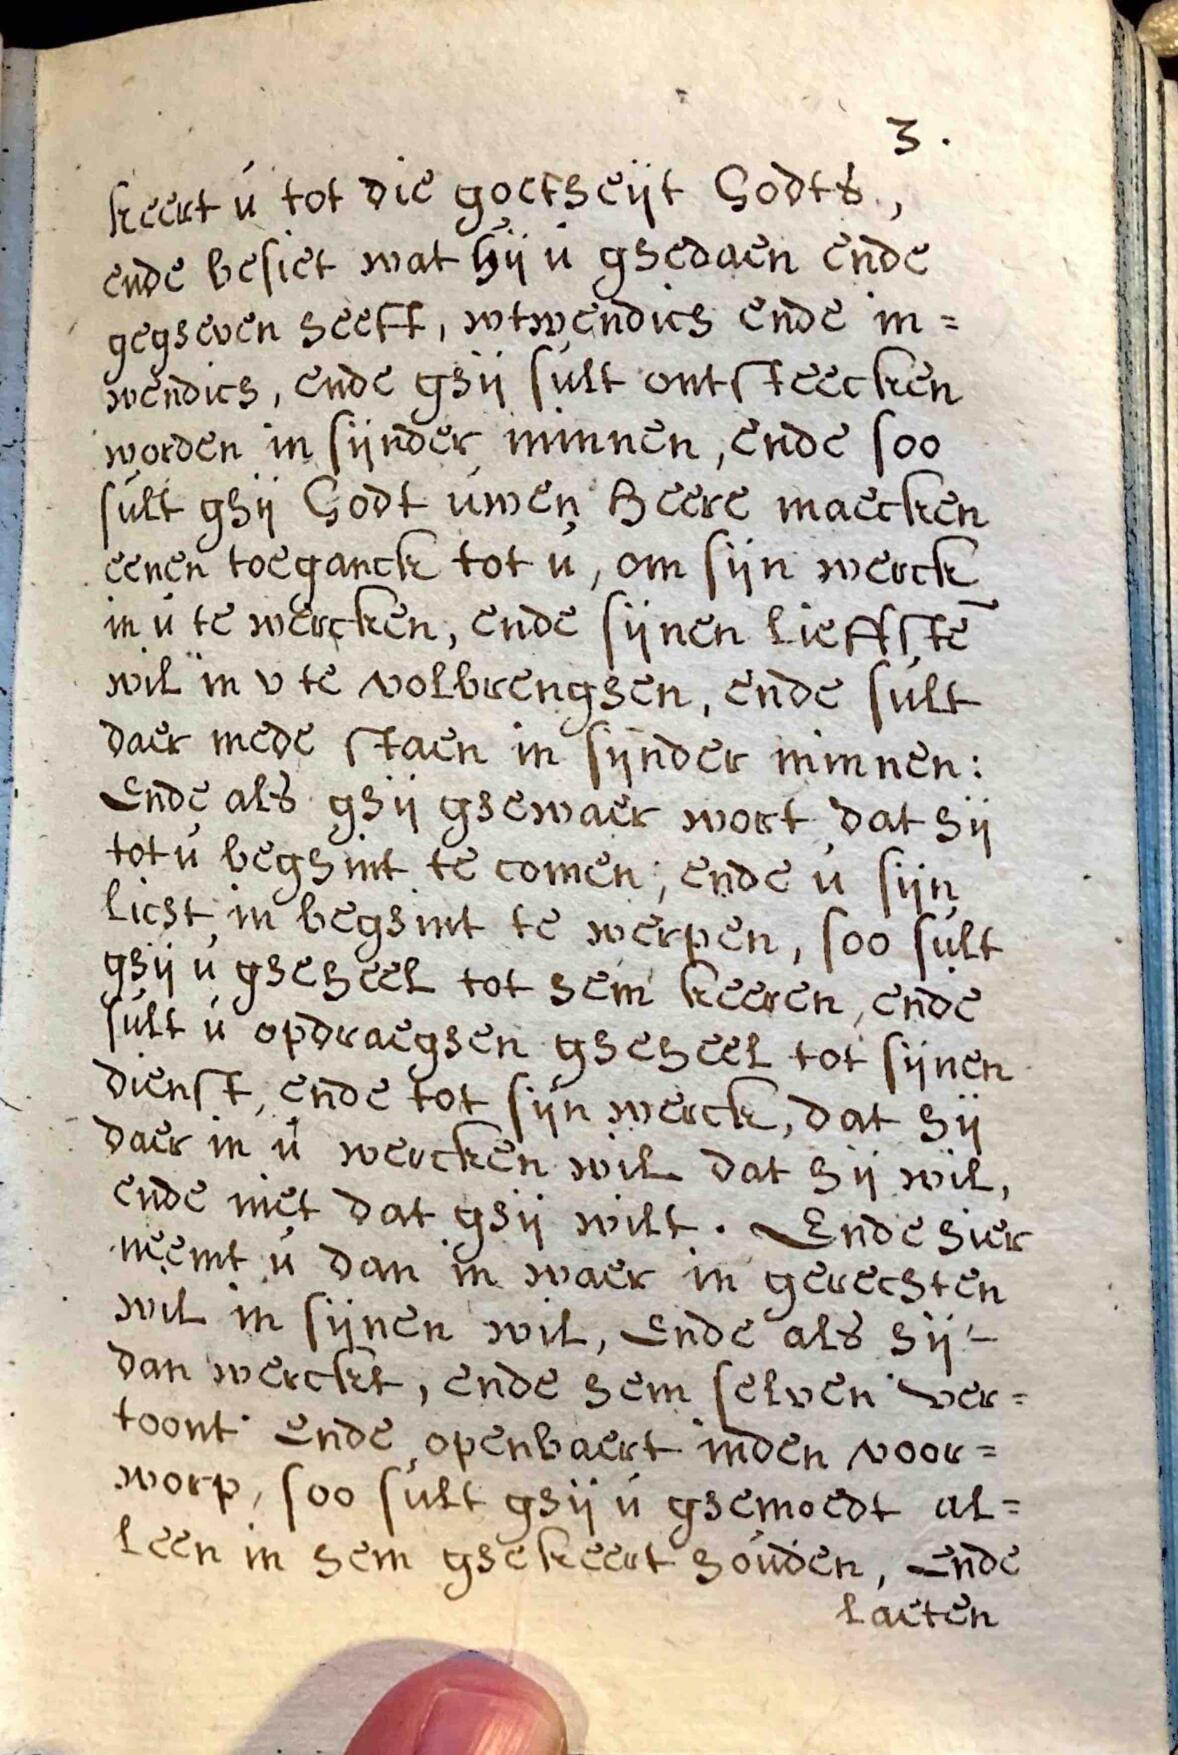 3.
keert ú tot die goetheijt Godts,
ende besiet wat hij ú ghedaen ende
gegheven heeft, wtwendich ende in=
wendich, ende ghij sult ontsteecken
worden in sijnder minnen, ende soo
sult ghij Godt úwen Heere maecken
eenen toeganck tot ú, om sijn werck
in ú te wercken, ende sijnen liefstē
wil in v te volbrenghen, ende sult
daer mede staen in sijnder minnen:
Ende als ghij ghewaer wort dat hij
tot ú beghint te comen, ende ú sijn
licht in beghint te werpen, soo sult
ghij ú gheheel tot hem keeren, ende
sult ú opdraeghen gheheel tot sijnen
dienst, ende tot sijn werck, dat hij
daer in ú wercken wil dat hij wil,
ende niet dat ghij wilt. Ende hier
neemt ú dan in waer in gerechten
wil in sijnen wil, Ende als hij
dan werckt, ende hem selven ver=
toont Ende openbaert inden voor=
worp, soo sult ghij ú ghemoedt al=
leen in hem ghekeert houden, Ende
laeten